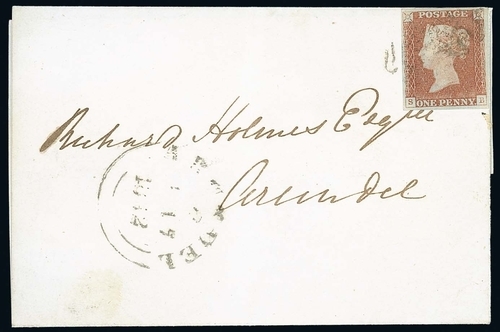 POSTAGE
S R
ONE PENNY
Richard Holmes Esqre
Arundel